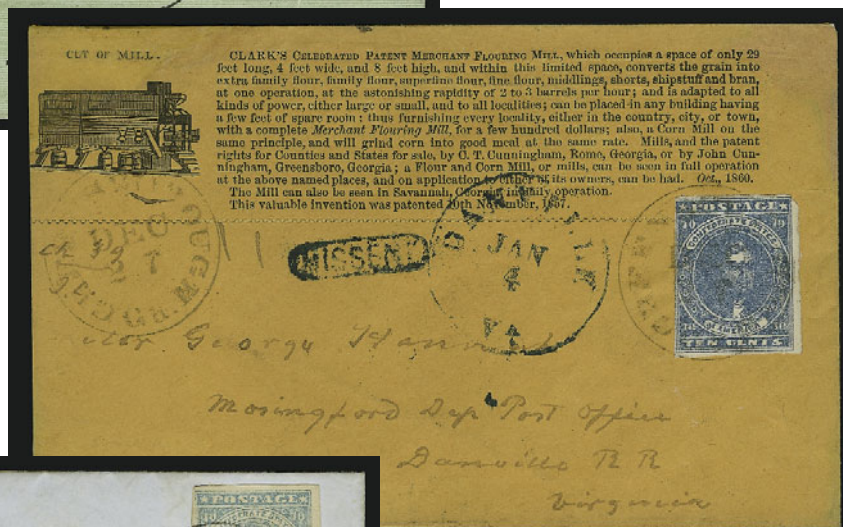 CUT OF MILL.
CLARK'S CELEBRATED PATENT MERCHANT FLOURING MILL, which occupies a space of only 29
feet long, 4 feet wide, and 8 feet high, and within this limited space, converts the grain into
extra family flour, family flour, superfine flour, fine flour, middlings, shorts, shipstuff and bran,
at one operation, at the astonishing rapidity of 2 to 3 barrels per hour; and is adapted to all
kinds of power, either large or small, and to all localities; can be placed in any building having
a few feet of spare room: thus furnishing every locality, either in the country, city, or town,
with a complete Merchant Flouring Mill, for a few hundred dollars; also, a Corn Mill on the
same principle, and will grind corn into good meal at the same rate. Mills, and the patent
rights for Counties and States for sale, by C. T. Cunningham, Rome, Georgia, or by John Cun-
ningham, Greensboro, Georgia; a Flour and Corn Mill, or mills, can be seen in full operation
at the above named places, and on application to either of its owners, can be had. Oct., 1860.
The Mill can also be seen in Savannah, Georgia, in daily operation.
This valuable invention was patented 10th November, 1857.
DEC
7
MISSENT
DANVILLE
JAN
4
VA
POSTAGE
10 10
CONFEDERATE STATES
OF AMERICA
10 10
TEN CENTS
George
Mosingford Dep Post Office
Danville R R
Virginia
POSTAGE
10 10